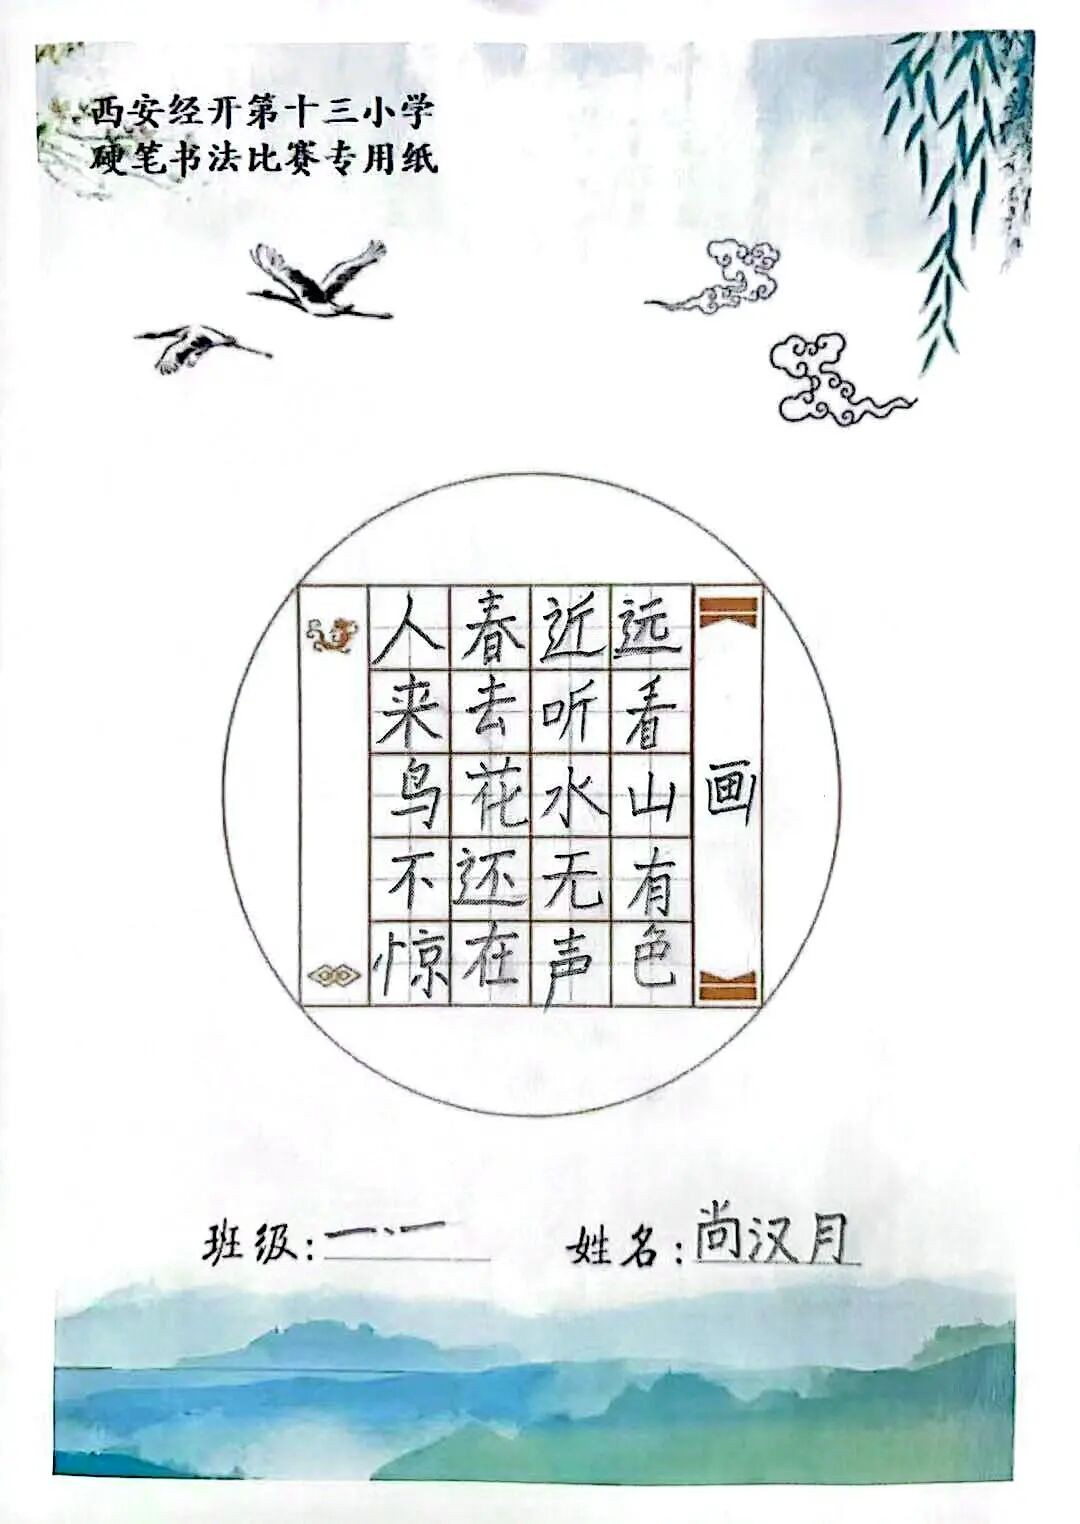 西安经开第十三小学
硬笔书法比赛专用纸
画
远看山有色
近听水无声
春去花还在
人来鸟不惊
班级:一、一
姓名:尚汉月